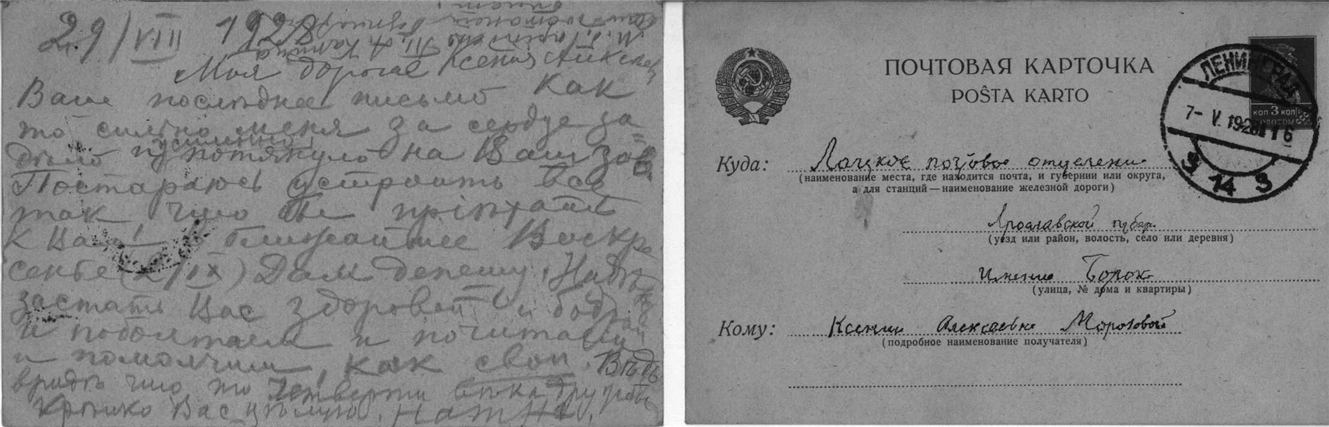 29/VIII 1928
Моя дорогая Ксения Алексеев
Ваше последнее письмо как
то сильно меня за сердце за
дѣло и потянуло на Ваш зов
усиленно
Постараюсь устроить все
так что бы пріѣхать
к Вам в ближайшее Воскре
сенье (2/IX) Дам депешу. Надѣюсь
застать Вас здоровой и бодрой
и поболтаем и почитаем
и помолчим, как свои. Вѣдь
что то четверти вѣка дружбы
Крѣпко Вас цѣлую.
ПОЧТОВАЯ КАРТОЧКА
POŜTA KARTO
ЛЕНИНГРАД
7- V. 1928
14
КОП 3 КОП
Куда: Лацкое почтовое отделение
(наименование места, где находится почта, и губернии или округа,
а для станций — наименование железной дороги)
Ярославской губер.
(уезд или район, волость, село или деревня)
имение Борок
(улица, № дома и квартиры)
Кому: Ксении Алексеевне Морозовой
(подробное наименование получателя)